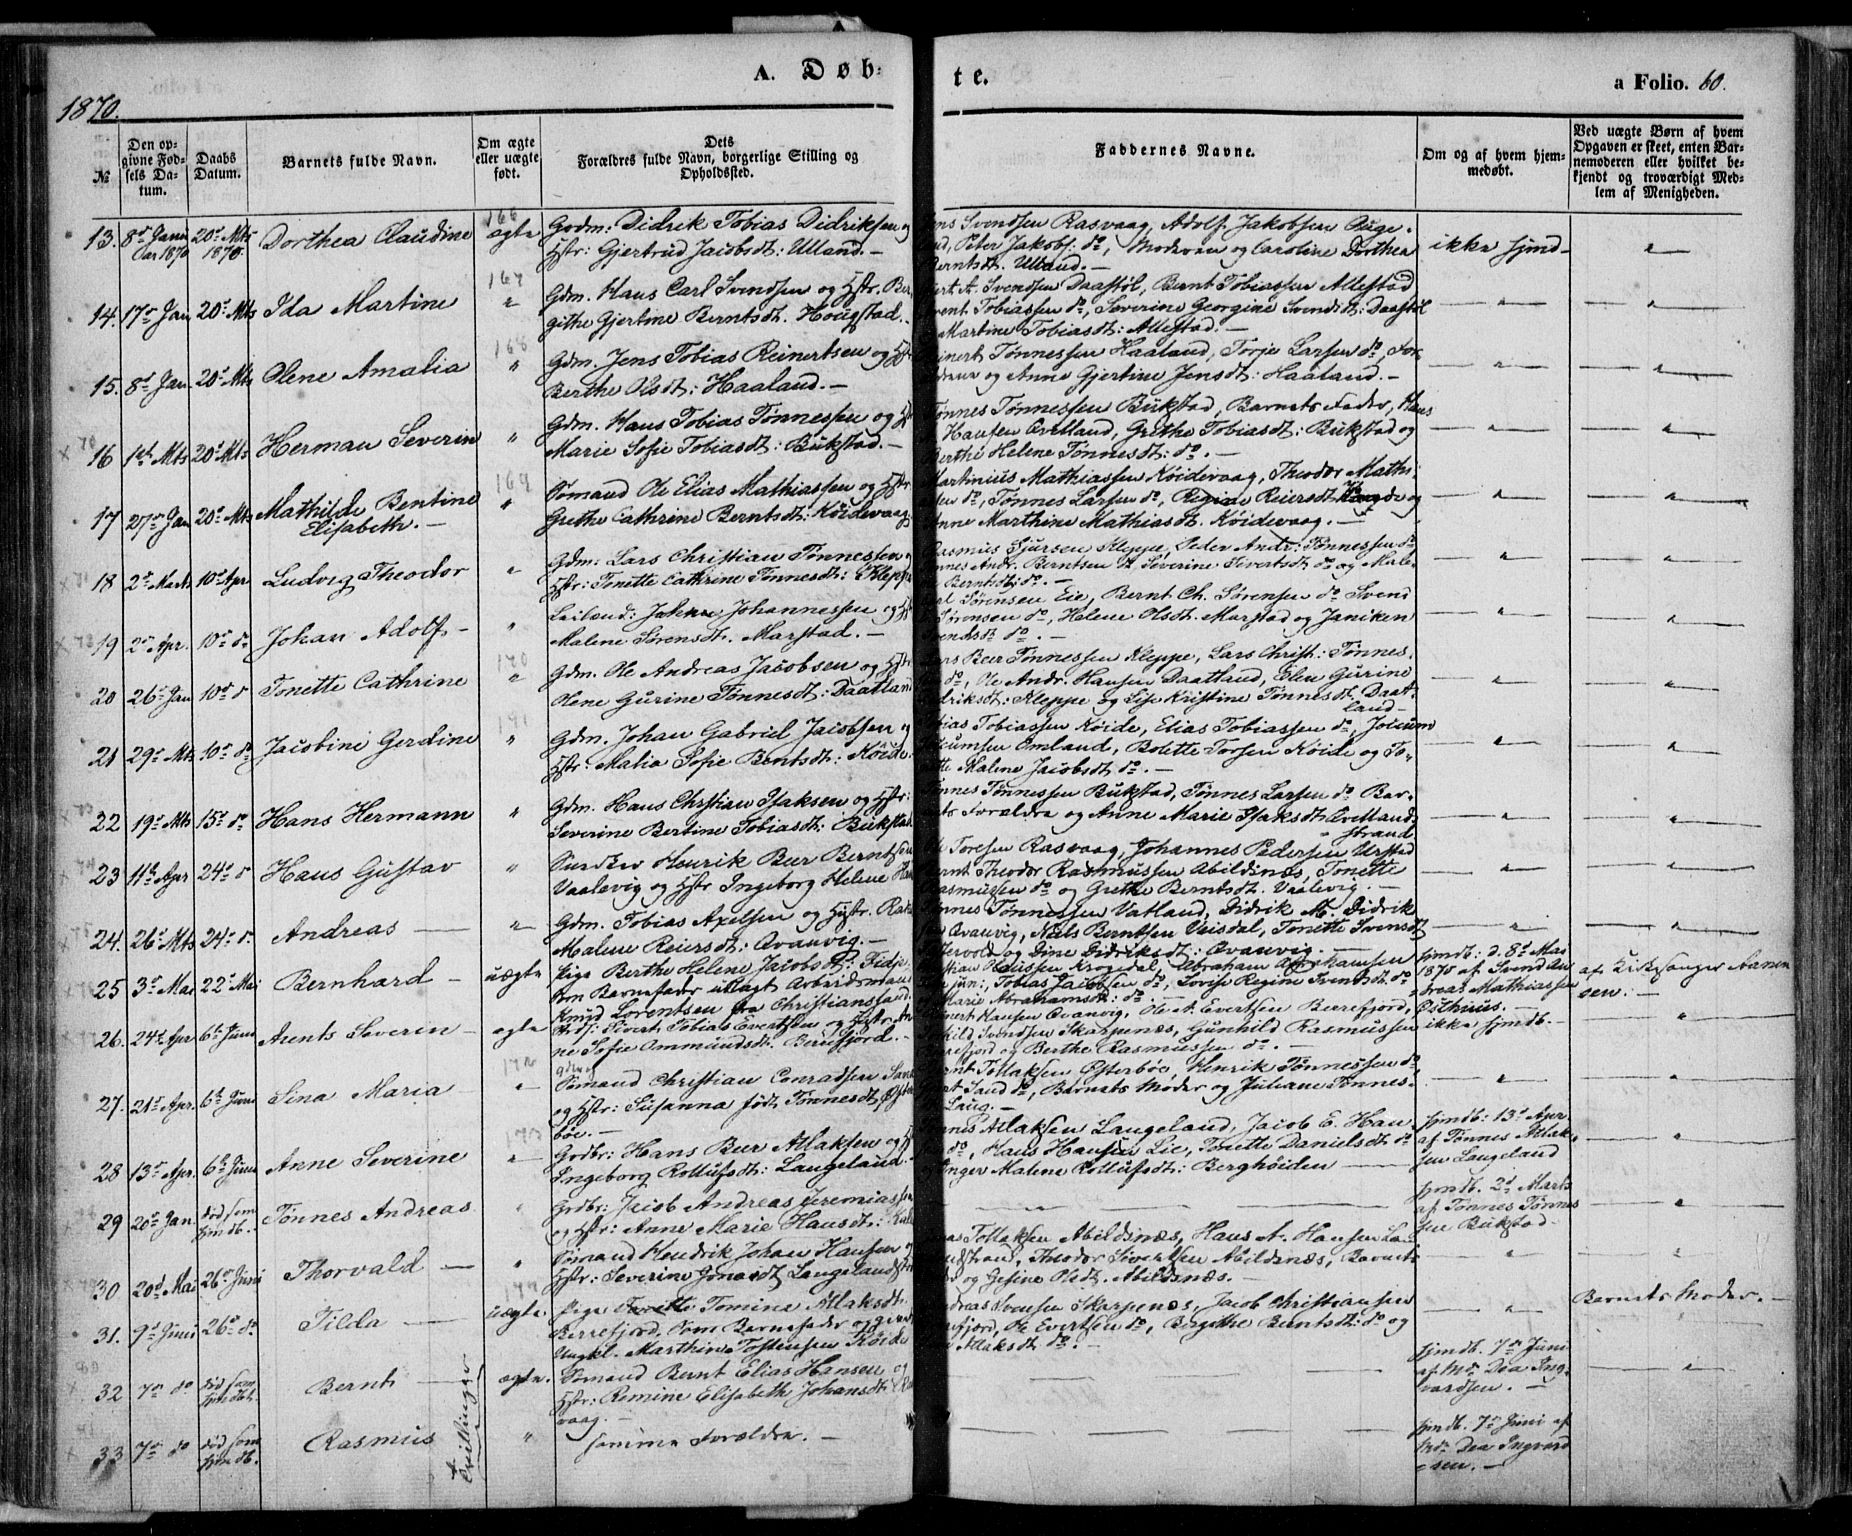 A. Døb-
te.
a Folio. 60.
1870.
№
Den op-
givne Fød-
sels Da-
tum.
Daabs
Datum.
Barnets fulde Navn.
Om ægte
eller uægte
født.
Dets
Forældres fulde Navn, borgerlige Stilling og
Opholdssted.
Faddernes Navne.
Om og af hvem hjem-
medøbt.
Ved uægte Børn af hvem
Opgaven er skeet, enten Bar-
nemoderen eller hvilket be-
kjendt og troværdigt Med-
lem af Menigheden.
166
13. 8de Janu
ar 1870 20de Mts
1870. Dorthea Claudine ægte Gdm: Didrik Tobias Didriksen og
Hstr: Gjertrud Jacobsdt: Ulland.—
Svendsen Rasvaag, Adolf Jakobsen
Peter Jakobs: do, Moderen og Caroline Dorthea
Berntsdt. Ulland.— ikke hjmd—
167
14. 17de Jan 20de Mts Ida Martine " Gdm. Hans Carl Svendsen og Hstr. Ber
githe Gjertine Berntsdt. Hougstad.
Svendsen Daastøl, Bernt Tobiassen Allestad
Tobiassen do, Severine Georgine Svendsdt: Daastøl
Martine Tobiasdt: Allestad.—
168
15. 8de Jan 20de Mts Olene Amalia " Gdm. Jens Tobias Reinertsen og Hstr
Berthe Olsdt: Haaland.—
Tønnessen Haaland, Torje Larsen do, For
ældrene og Anne Gjertine Jensdt: Haaland.—
16 1ste Mts 20de Mts Herman Severin " Gdm. Hans Tobias Tønnessen og H
Marie Sofie Tobiasdt: Bukstad.—
Tønnes Tønnessen Bukstad, Barnets Fader, Hans
Hansen Qvelland, Grethe Tobiasdt: Bukstad og
Berthe Helene Tønnesdt: do.—
169
17 27de Jan 20de Mts Mathilde Bentine
Elisabeth.— " Sømand Ole Elias Mathiassen og Hstr
Grethe Cathrine Berntsdt: Köidevaag
Martinius Mathiassen Köidevaag, Theodor Maths:
do, Tønnes Larsen do, Regine Reiersdt og
Anne Marthine Mathiasdt. Köidevaag.—
18 2de Marts 10de Apr Ludvig Theodor " Gdm: Lars Christian Tønnessen og
Hstr: Tonette Cathrine Tønnesdt: Kleppe
Rasmus Sjursen Kleppe, Peder Andr: Tønnessen do
Andr. Berntsen Severine Sivertsdt do og Male-
Berntsdt: do.—
19 2de Apr. 10de do Johan Adolf— " Leilænd: Johan Johannessen og H
Malene Sørensdt. Marstad.—
Sørensen Eie, Bernt Ch. Sørensen do Svend
Sørensen do, Helene Olsdt. Marstad og Janiken
Svendsdt do.—
170
20 26de Jan 10de d Tonette Cathrine " Gdm. Ole Andreas Jacobsen og Hstr
Olene Gurine Tønnesdt: Daatland
Beer Tønnessen Kleppe, Lars Christ: Tønnes.
do, Ole Andr. Hansen Daatland, Elen Gurine
Kleppe og Lise Kristine Tønnesdt. Daat-
land—
171
21 29de Mts 10de do Jacobine Gerdine " Gdm. Johan Gabriel Jacobsen og
Hstr: Malia Sofie Berntsdt: Köide.
Tobias Tobiassen Köide, Elias Tobiassen do, Jocum
Jocumsen Omland, Bolette Torsen Köide og To-
Malene Jacobsdt do.—
22 19de Mts 15de do Hans Hermann " Gdm. Hans Christian Isaksen og Hstr:
Severine Bertine Tobiasdt: Bukstad
Tønnes Tønnessen Bukstad, Tønnes Larsen do Bar-
nets Forældre og Anne Marie Isaksdt Qvellands
strand
23 11te Apr 24de d Hans Gustav " Henrik Beer Berntsen
Vaalevig og Hstr Ingeborg Helene
Toresen Rasvaag, Johannes Pedersen Urstad
Bernt Theodor Rasmussen Abildsnæs, Tonette
Rasmussen do og Grethe Berntsdt. Vaalevig.—
24. 26de Mts 24de d. Andreas — " Gdm. Tobias Axelsen og Hstr. Rak
Malene Reiersdt: Qvanvig.—
Tønnes Tønnessen Vatland, Didrik M. Didrik
Qvanvig, Niels Berntsen Veisdal, Tonette Svensdt
og Dine Didriksdt: Qvanvig.—
25 3de Mai 22de Mai Bernhard — uægte Pige Berthe Helene Jacobsdt: Fidje
Som Barnefader udlagt Arbeidsmand
Knud Lorentsen fra Christianssand.
Hansen Krogedal, Abraham Abrahamsen
jun:, Tobias Jacobsen do, Lovise Regine Svendsdt do
Marie Abrahamsdt: do.—
hjmdb: d. 8de Mai
1870 af Svend An
dreas Mathiassen
Østhuus.
af Kirkesanger Aanen
sen.—
26. 24de Apr 6te Juni Arents Severin— ægte Grdbr: Sivert Tobias Evertsen og Hstr: An
ne Sofie Ommundsdt. Berrefjord.—
Hansen Qvanvig, Ole A. Evertsen Berrefjord,
Svendsen Skarpenæs, Gunhild Rasmussen
Berrefjord og Berthe Rasmussen do.—
ikke hjmdb.—
172
27. 21de Apr. 6te Juni Sina Maria " Sømand Christian Conradsen
og Hstr: Susanna født Tønnesdt Øster
bøe.—
Tollaksen Østerbøe, Henrik Tønnessen do
Sand do, Barnets Moder og Juliane Tønnes-
Laug.—
173
28 13de Apr. 6te Juni Anne Severine " Grdbr: Hans Beer Atlaksen og H
Ingeborg Rollufsdt: Langeland.
Tønnes Atlaksen Langeland, Jacob E. Han
do, Hans Hansen Lie, Tonette Danielsdt do
Inger Malene Rollufsdt: Berghöiden—
hjmdb: 13de Apr.
af Tønnes Atlak-
sen Langeland
29 20de Jan. død som
hjmdb. Tønnes Andreas " Grdbr: Jacob Andreas Jeremiassen
og Hstr: Anne Marie Hansdt:
hjmdb. 2de Marts
af Tønnes Tønnes
sen Bukstad—
30 20de Mai 26de Juni Thorvald — " Sømand Hendrik Johan Hansen og
Hstr: Severine Jonasdt Langelandstr
Tollaksen Abildsnæs, Hans A. Hansen La
strand, Theodor Sivertsen Abildsnæs, Barnets
og Gesine Olsdt. Abildsnæs.—
174
31. 9de Juni 26de do Tilda — uægte. Pige Tomine Atlaksdt.
Berrefjord, Som Barnefader
Ungkl. Marthin Tostensen Köide
Andreas Svensen Skarpenæs, Jacob Christiansen
Ole Evertsen do, Birgithe Berntsdt: do og
Atlaksdt do.—
Barnets Moder.—
32 7de do død som
hjmdbt. Bernt — ægte. Sømand Bernt Elias Hansen og
Hstr: Remine Elisabeth Johansdt: Ras
vaag.—
hjmdb. 7de Juni
af Md. Dea Ing-
vardsen.—
Tvillinger
33 7de do død som
hjmdb. Rasmus " samme Forældre.—
hjmdb. 7de Juni af
Md. Dea Ingvard
sen.—